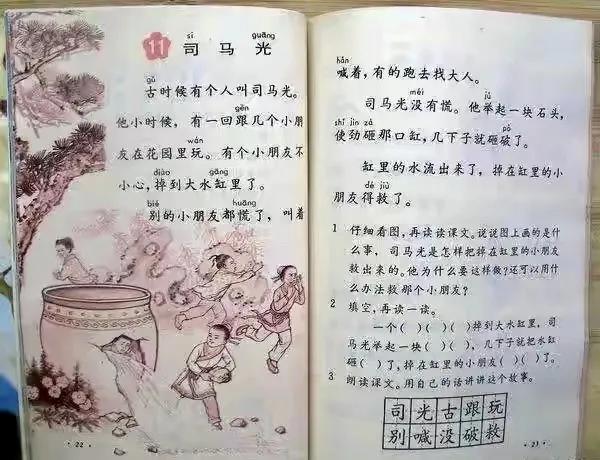 11 司马光
sī guāng
gǔ
古时候有个人叫司马光。
gēn
他小时候，有一回跟几个小朋
wán
友在花园里玩。有个小朋友不
diào gāng
小心，掉到大水缸里了。
bié huāng
别的小朋友都慌了，叫着
· 22 ·
hǎn
喊着，有的跑去找大人。
méi jǔ
司马光没有慌。他举起一块石头，
shǐ jìn zá pò
使劲砸那口缸，几下子就砸破了。
缸里的水流出来了，掉在缸里的小
dé jiù
朋友得救了。
1 仔细看图，再读读课文。说说图上画的是什
么事，司马光是怎样把掉在缸里的小朋友
救出来的。他为什么要这样做？还可以用什
么办法救那个小朋友？
2 填空，再读一读。
一个（ ）（ ）（ ）掉到大水缸里，司
马光举起一块（ ）（ ），几下子就把水缸
砸（ ）了，掉在缸里的小朋友（ ）（ ）了。
3 朗读课文。用自己的话讲讲这个故事。
司光古跟玩
别喊没破救
· 23 ·